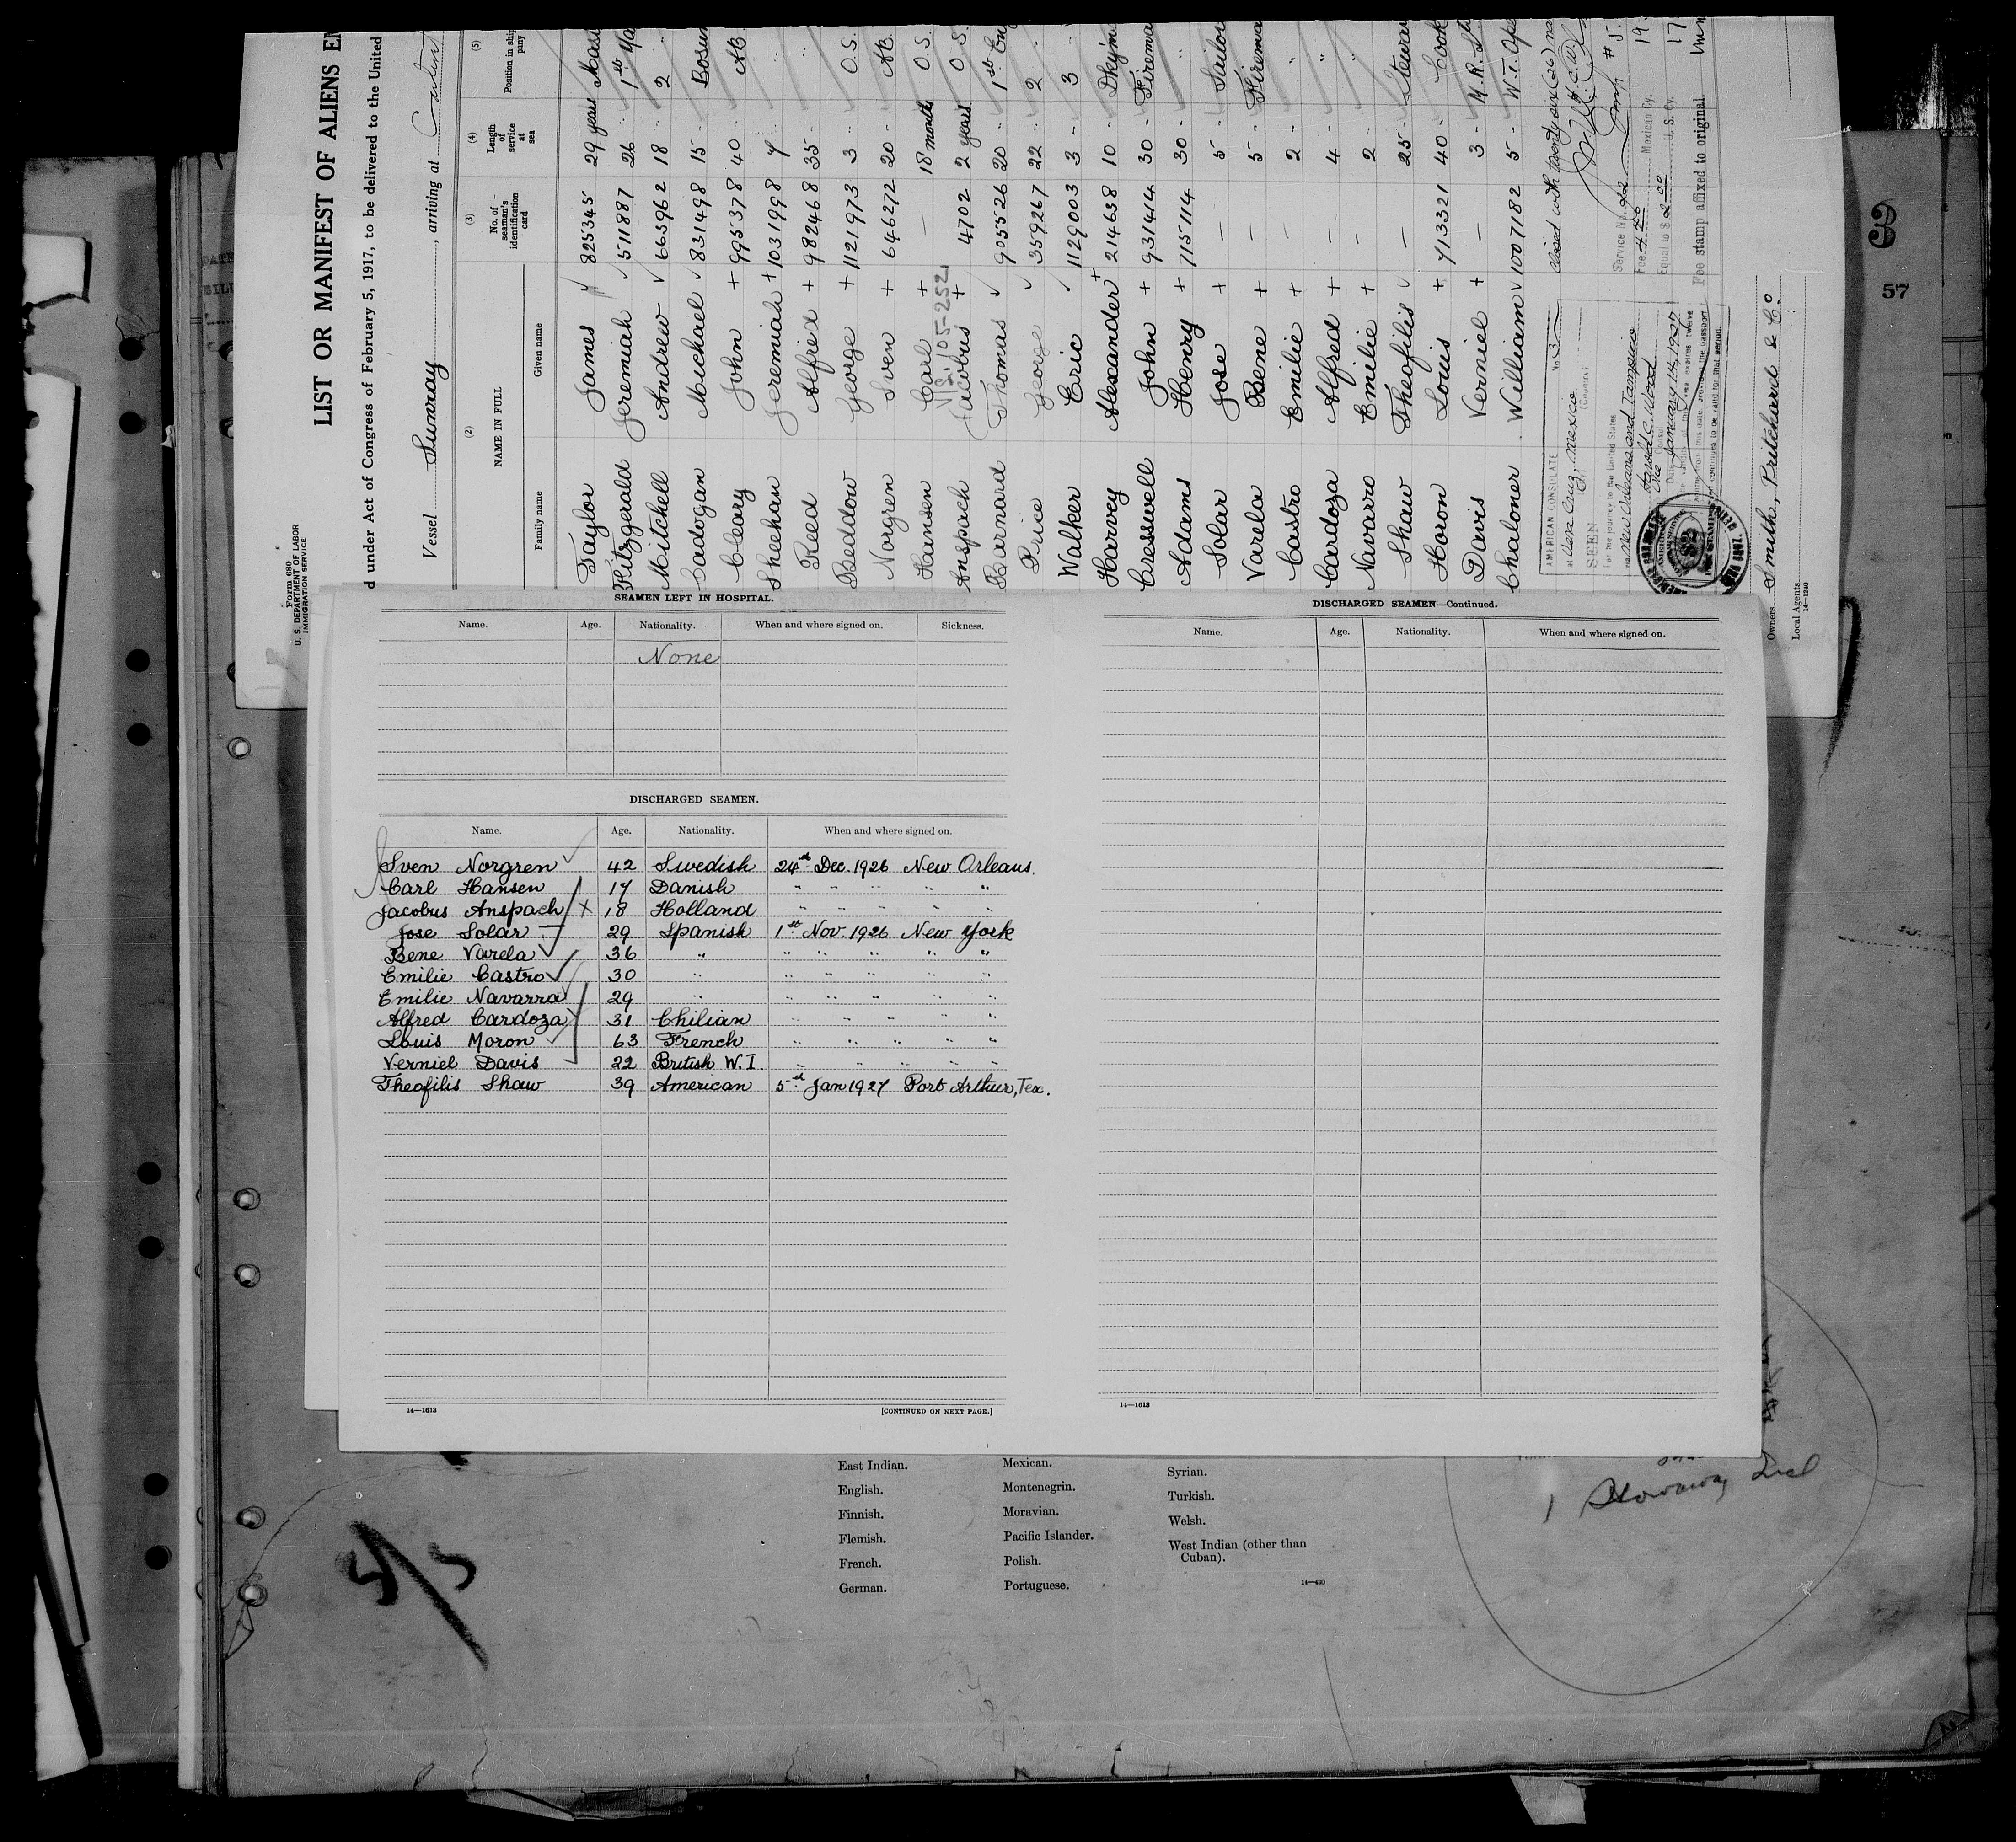 Form 680
U. S. DEPARTMENT OF LABOR
IMMIGRATION SERVICE
LIST OR MANIFEST OF ALIENS
d under Act of Congress of February 5, 1917, to be delivered to the United
Vessel Sunray, arriving at
(2) (3) (4) (5)
NAME IN FULL No. of seaman's identification card Length of service at sea Position in ship
Family name Given name
Taylor James 825345 29 years
Fitzgerald Jeremiah 511887 26 " 1st
Mitchell Andrew 663962 18 " 2 "
Cadogan Michael 831498 15 " Bosun
Cleary John + 995378 40 " AB
Sheehan Jeremiah + 1031998 "
Reed Alfred + 982468 35 " "
Beddow George + 1121973 3 " O.S.
Norgren Sven + 646272 20 " AB
Hansen Carl + — 18 months O.S.
Anspach Jacobus + 4702 2 years O.S.
105-252
Barnard Thomas 905526 20 " 1st
Price George 359267 22 " 2 "
Walker Eric 1129003 3 " 3 "
Harvey Alexander + 214638 10 "
Cresswell John + 931414 30 "
Adams Henry + 775114 30 " "
Solar Jose + — 5 " Sailor
Varela Bene + — 5 "
Castro Emilie + — 2 " "
Cardoza Alfred + — 4 " "
Navarro Emilie + — 2 "
Shaw Theofilis — 25 "
Horon Louis + 713321 40 " Cook
Davis Verniel + — 3 "
Chaloner William 1007182 5 "
AMERICAN CONSULATE
at Vera Cruz, Mexico
(Country)
SEEN
For the journey to the United States
via New Orleans and Tampico
Harold C. Wood
January 14, 1927
Mexican Cy.
Equal to $ 2.00 U. S. Cy.
Fee stamp affixed to original.
Owners Smith, Pritchard & Co
Local Agents
14—1240
3
57
SEAMEN LEFT IN HOSPITAL.
Name. Age. Nationality. When and where signed on. Sickness.
None
DISCHARGED SEAMEN.
Name. Age. Nationality. When and where signed on.
Sven Norgren 42 Swedish 24th Dec. 1926 New Orleans.
Carl Hansen 17 Danish " " " " "
Jacobus Anspach X 18 Holland " " " " "
Jose Solar 29 Spanish 1st Nov. 1926 New York
Bene Varela 36 " " " " " "
Emilie Castro 30 " " " " " "
Emilie Navarra 29 " " " " " "
Alfred Cardoza 31 Chilian " " " " "
Louis Moron 63 French " " " " "
Verniel Davis 22 British W. I. " " " " "
Theofilis Shaw 39 American 5th Jan 1927 Port Arthur, Tex.
14—1613 [CONTINUED ON NEXT PAGE.]
DISCHARGED SEAMEN—Continued.
Name. Age. Nationality. When and where signed on.
14—1613
East Indian.
English.
Finnish.
Flemish.
French.
German.
Mexican.
Montenegrin.
Moravian.
Pacific Islander.
Polish.
Portuguese.
Syrian.
Turkish.
Welsh.
West Indian (other than
Cuban).
14—430
1 Stowaway
5/5